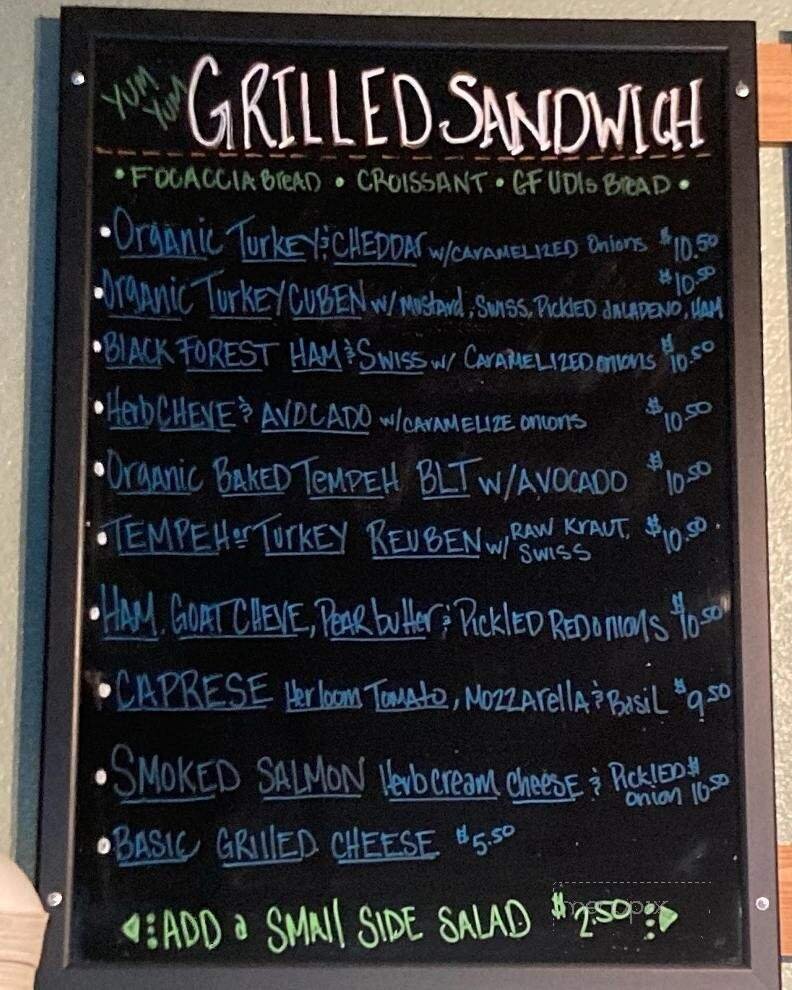 YUM YUM GRILLED SANDWICH
• FOCACCIA BreAD • CROISSANT • GF UDIs BreAD •
• OrgANic TurKEY & CHEDDAr w/CArAMELIZED Onions $10.50
$10.50
• OrgANic TurKEY CUBEN w/ Mustard, Swiss, PickLED JALAPENO, HAM
• BLACK FOREST HAM & Swiss w/ CArAMELIZED onions $10.50
• Herb CHEVE & AVOCADO w/CArAMELIZE onions $10.50
• Organic BAKED TEMPEH BLT w/AVOCADO $10.50
• TEMPEH or TurKEY REUBEN w/ RAW KrAUT, SWISS $10.50
• HAM, GOAT CHEVE, PEAR butter & PickLED RED onions $10.50
• CAPRESE Heirloom TomATo, MOZZArella & BasiL $9.50
• SMOKED SALMON Herb cream cheese & PickLED onion $10.50
• BASIC GRILLED CHEESE $5.50
ADD a SMAll SIDE SALAD $2.50
menupix